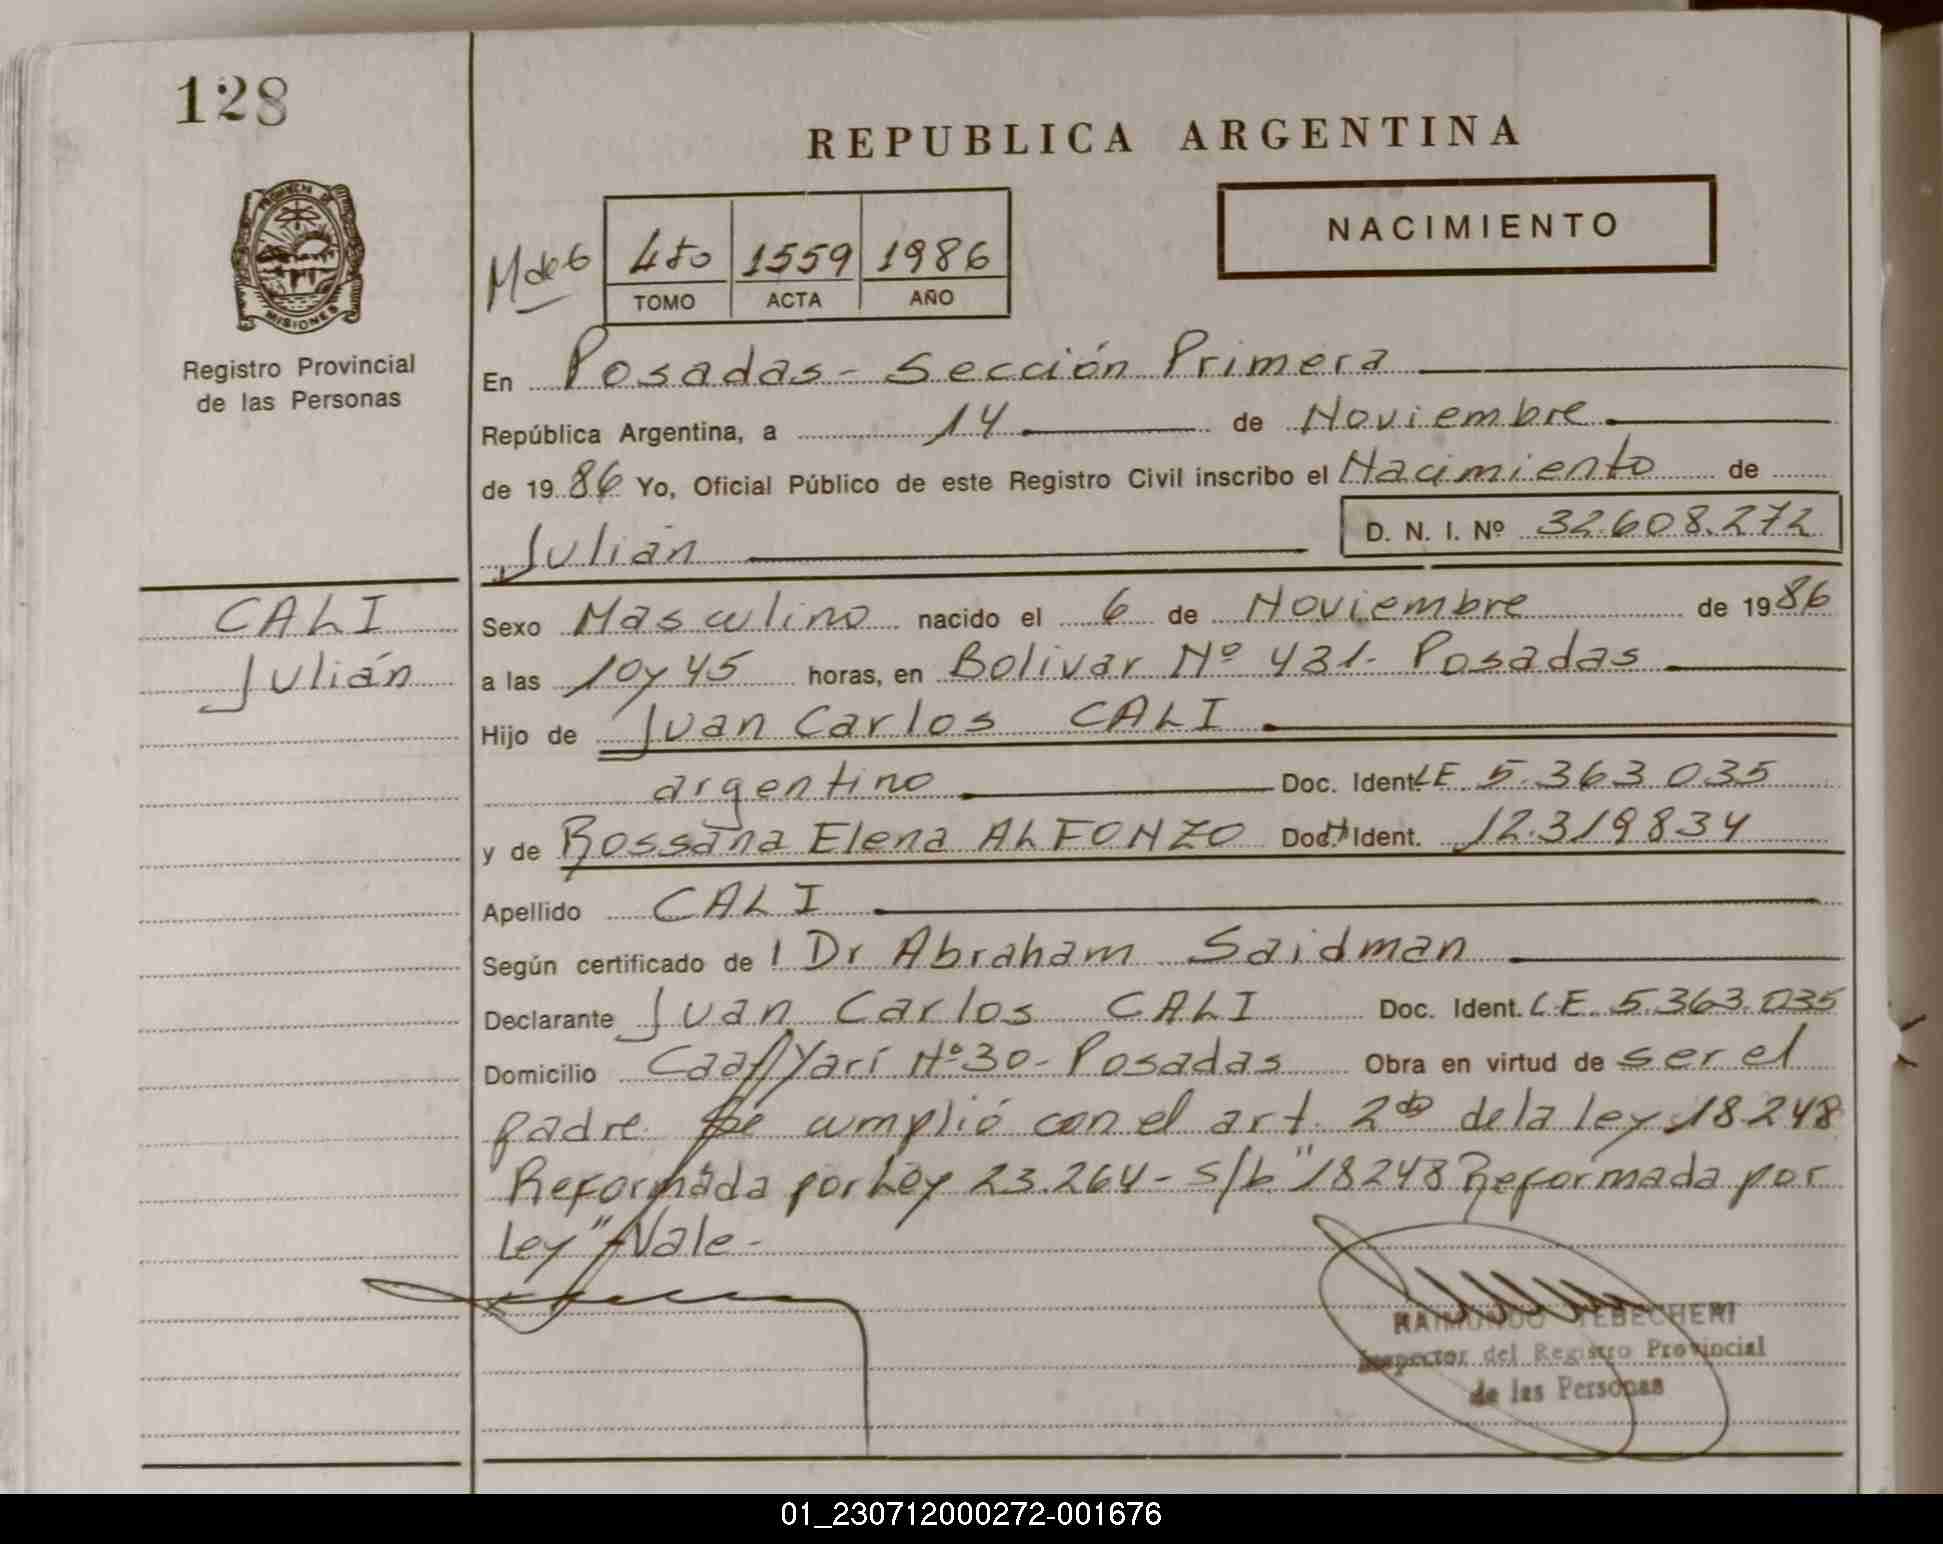 128
REPUBLICA ARGENTINA
NACIMIENTO
M de 6
4to 1559 1986
TOMO ACTA AÑO
PROVINCIA DE
MISIONES
Registro Provincial
de las Personas
En Posadas - Sección Primera
República Argentina, a 14 de Noviembre
de 1986 Yo, Oficial Público de este Registro Civil inscribo el Nacimiento de
Julián
D. N. I. Nº 32.608.272
CALI
Julián
Sexo Masculino nacido el 6 de Noviembre de 1986
a las 10 y 45 horas, en Bolivar Nº 431- Posadas
Hijo de Juan Carlos CALI
argentino Doc. Ident. LE 5.363.035
y de Rossana Elena ALFONZO Doc. Ident. 12.319834
Apellido CALI
Según certificado de l Dr Abraham Saidman
Declarante Juan Carlos CALI Doc. Ident. L.E. 5.363.035
Domicilio Caá Yarí Nº 30- Posadas Obra en virtud de ser el
padre. Se cumplió con el art. 2do de la ley 18248
Reformada por Ley 23.264- s/b "18248 Reformada por
Ley" Vale-
RAIMUNDO TEBECHERI
Inspector del Registro Provincial
de las Personas
01_230712000272-001676